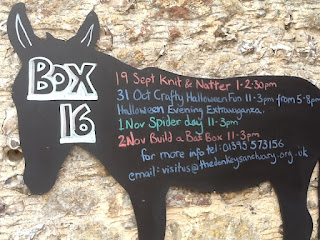 BOX
16
19 Sept Knit & Natter 1-2:30pm
31 Oct Crafty Halloween Fun 11-3pm from 5-8pm
Halloween Evening Extravaganza.
1 Nov Spider day 11-3pm
2 Nov Build a Bat Box 11-3pm
for more info tel: 01395 573156
email: visitus@thedonkeysanctuary.org.uk